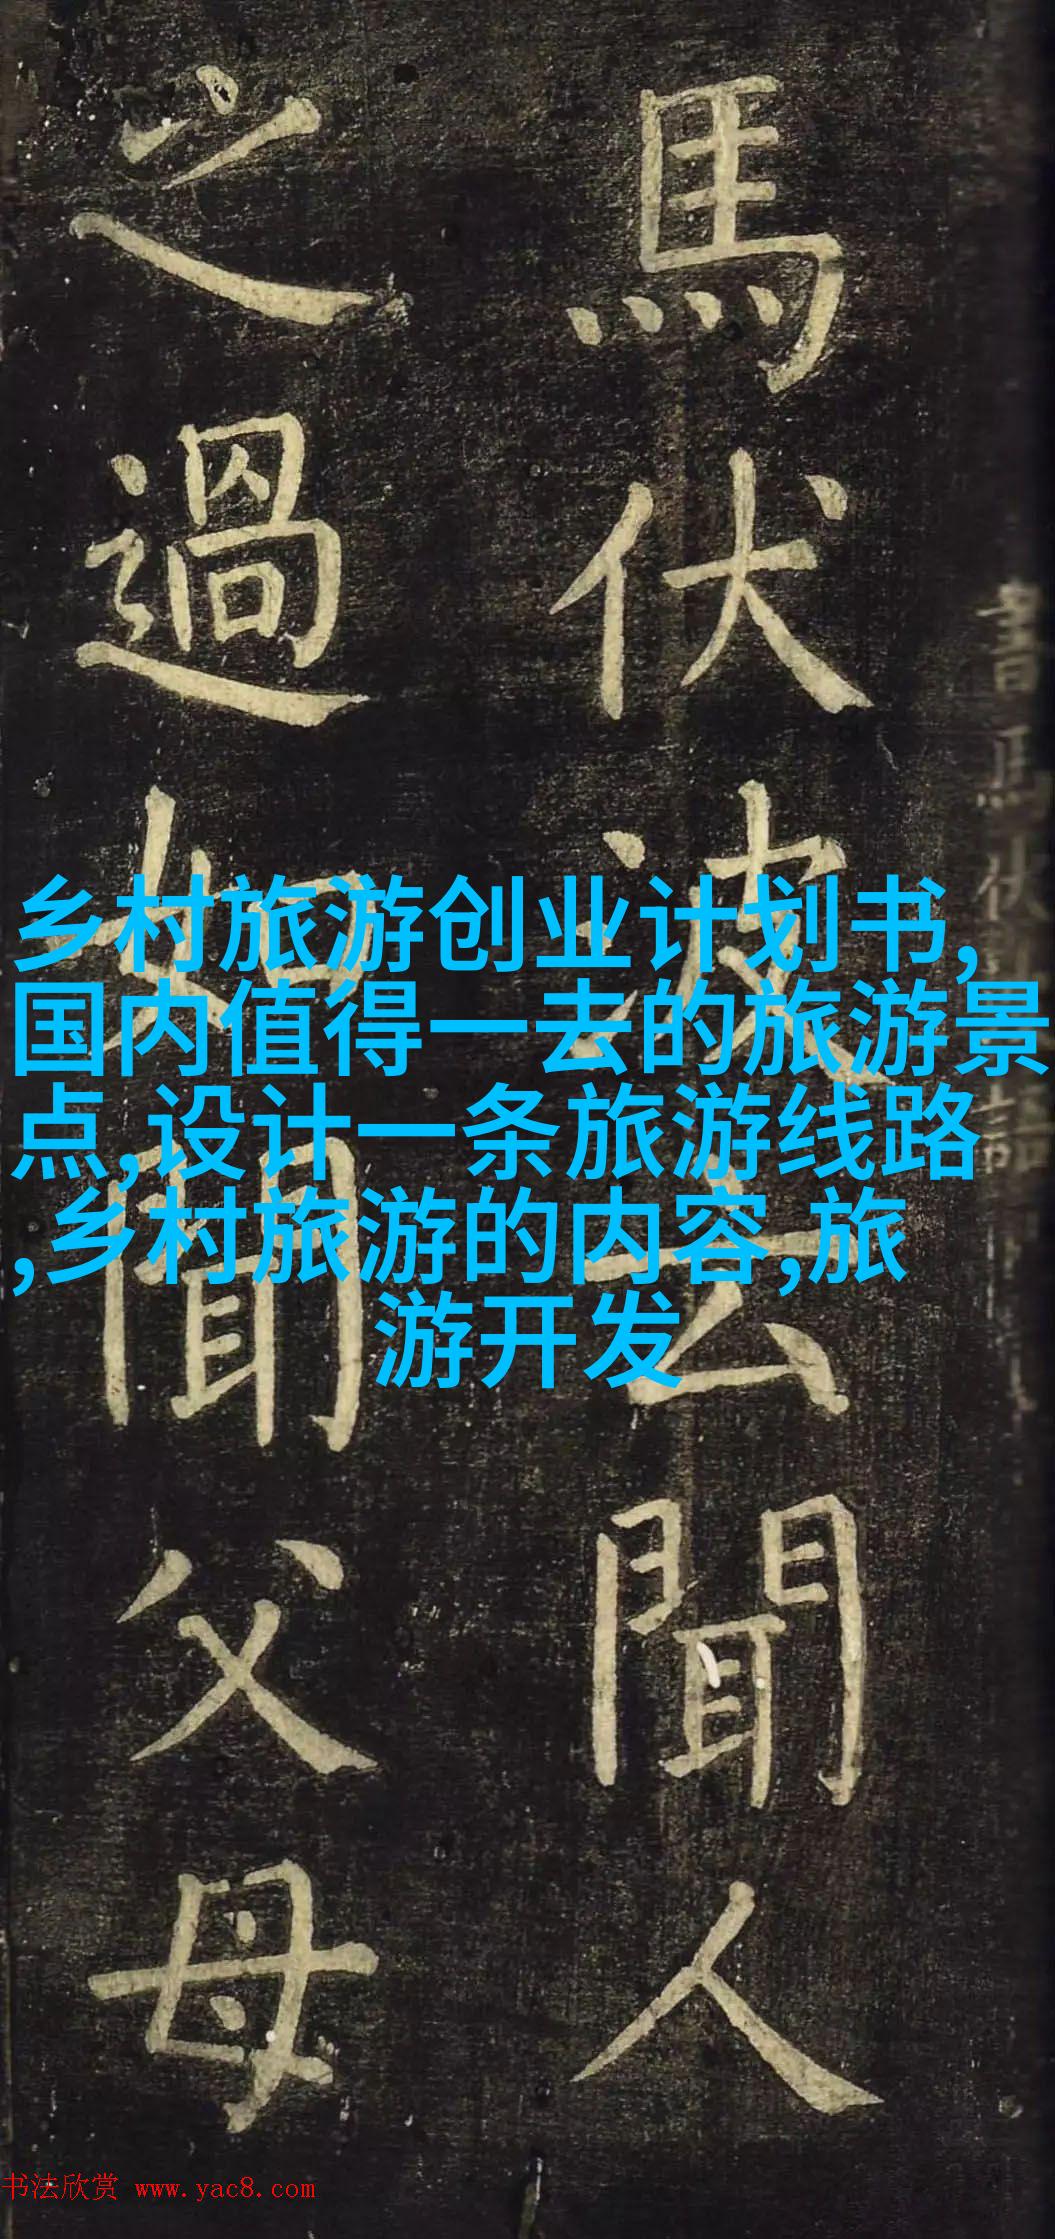 馬伏波云聞人
之過如聞父母
乡村旅游创业计划书,
国内值得一去的旅游景
点,设计一条旅游线路
,乡村旅游的内容,旅
游开发
书法欣赏 www.yac8.com